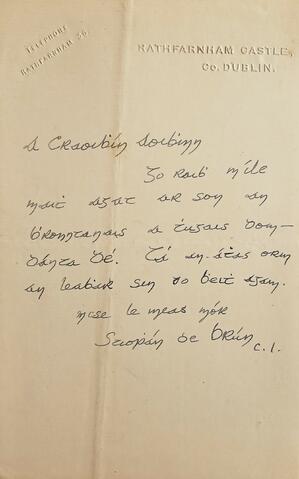 TELEPHONE
RATHFARNHAM 36.
RATHFARNHAM CASTLE,
Co. DUBLIN.
A Ċraoiḃín Aoiḃinn
Go raiḃ míle
maiṫ agat ar son an
bronntanais a ṫugais dom—
Dánta Dé. Tá an-áṫas orm
an leaḃar sin do ḃeiṫ agam.
mise le meas mór
Stiopán de Brún C.I.